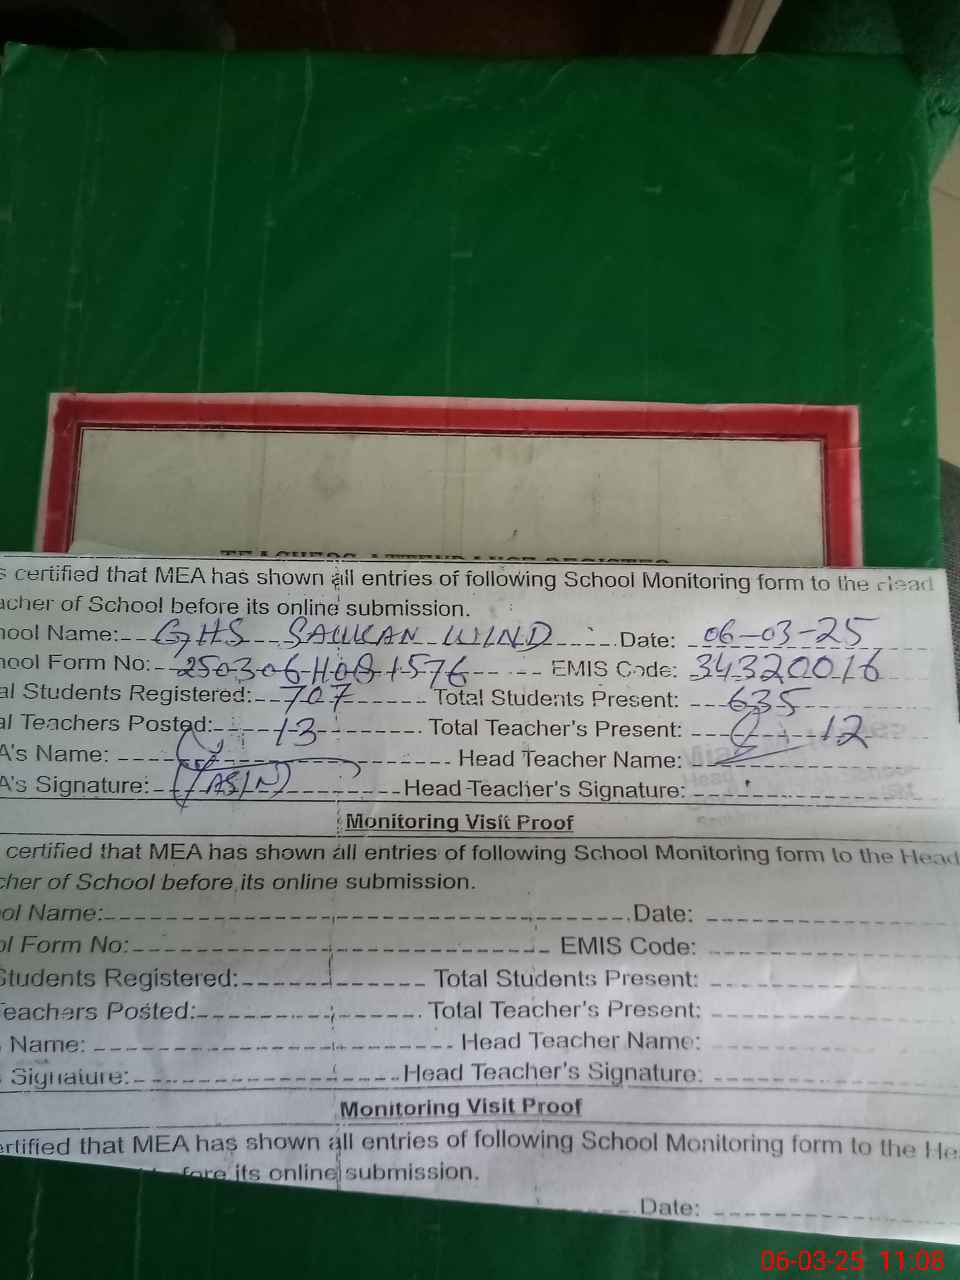 TEACHERS ATTENDANCE REGISTER
s certified that MEA has shown all entries of following School Monitoring form to the Head
acher of School before its online submission.
hool Name: GHS SAUKAN WIND Date: 06-03-25
hool Form No: 250306-H081576 EMIS Code: 34320016
al Students Registered: 707 Total Students Present: 635
al Teachers Posted: 13 Total Teacher's Present: 12
A's Name: Head Teacher Name:
A's Signature: (YASIN) Head Teacher's Signature:
Monitoring Visit Proof
certified that MEA has shown all entries of following School Monitoring form to the Head
cher of School before its online submission.
ol Name: Date:
ol Form No: EMIS Code:
Students Registered: Total Students Present:
Teachers Posted: Total Teacher's Present:
Name: Head Teacher Name:
Signature: Head Teacher's Signature:
Monitoring Visit Proof
ertified that MEA has shown all entries of following School Monitoring form to the He
fore its online submission.
Date:
06-03-25 11:08